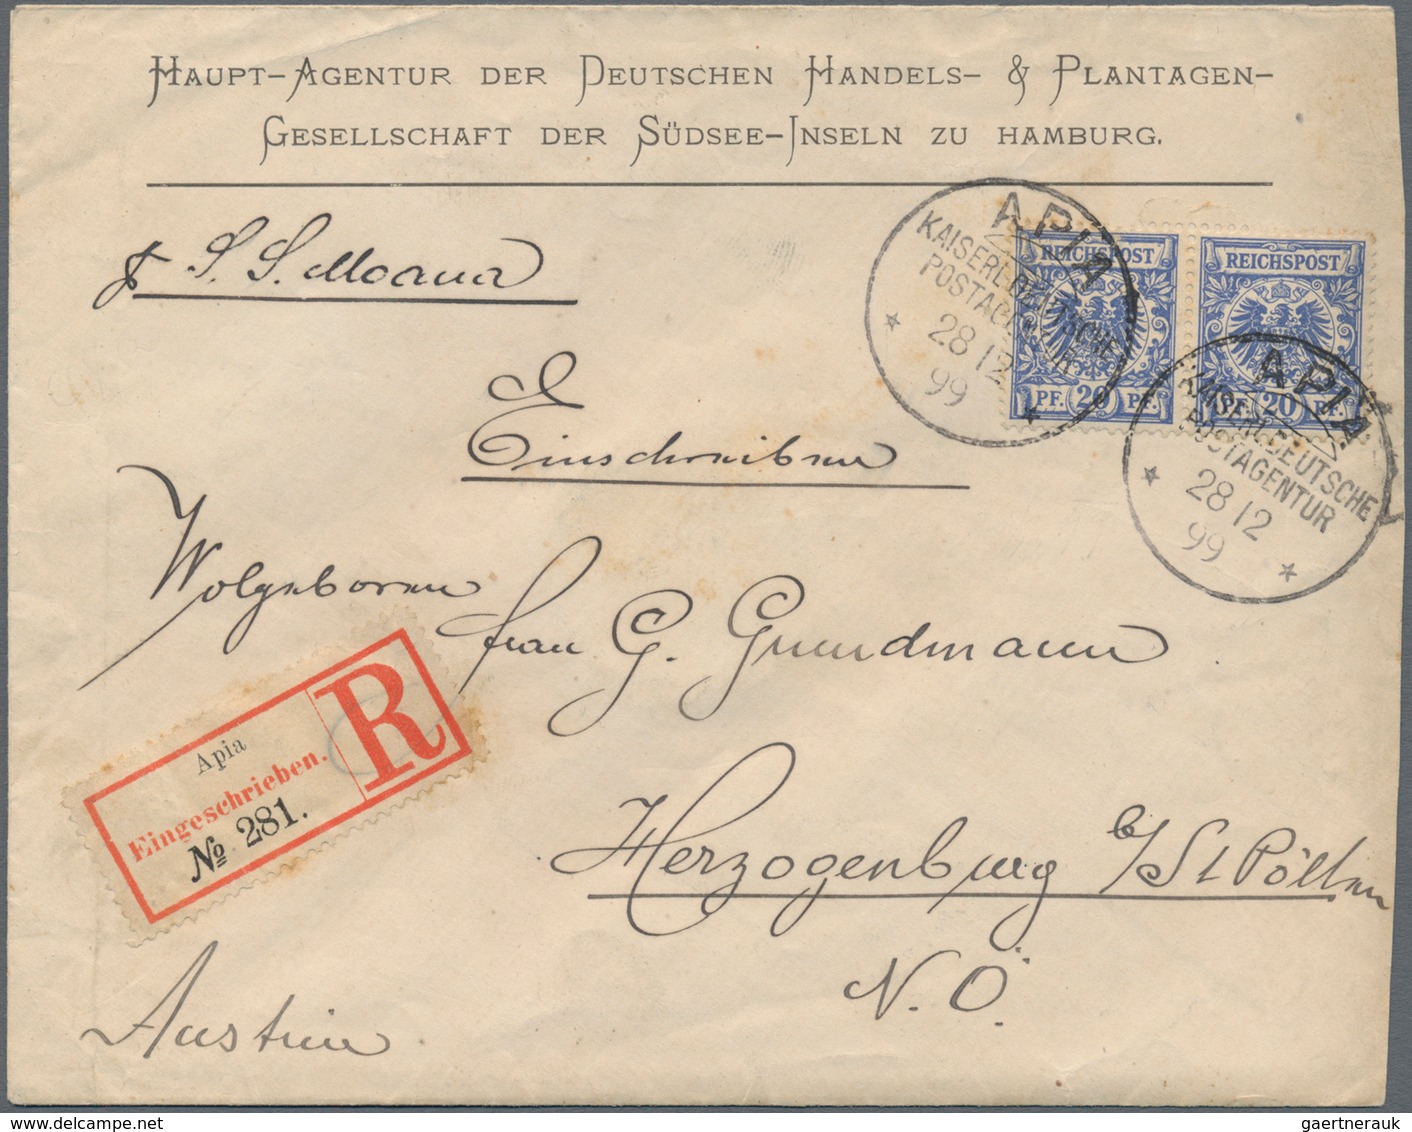 HAUPT-AGENTUR DER DEUTSCHEN HANDELS- & PLANTAGEN-
GESELLSCHAFT DER SÜDSEE-INSELN ZU HAMBURG.
p S. S. Moana
APIA
KAISERL. DEUTSCHE
POSTAGENTUR
28 12
99
REICHSPOST
PF. 20 PF.
REICHSPOST
PF. 20 PF.
APIA
KAISERL. DEUTSCHE
POSTAGENTUR
28 12
99
Einschreiben
Wolgeboren
Frau G. Grundmann
Apia
Eingeschrieben.
№ 281.
R
Herzogenburg b/St Pölten
N. Ö.
Austria
gaertnerauk@delcampe.net